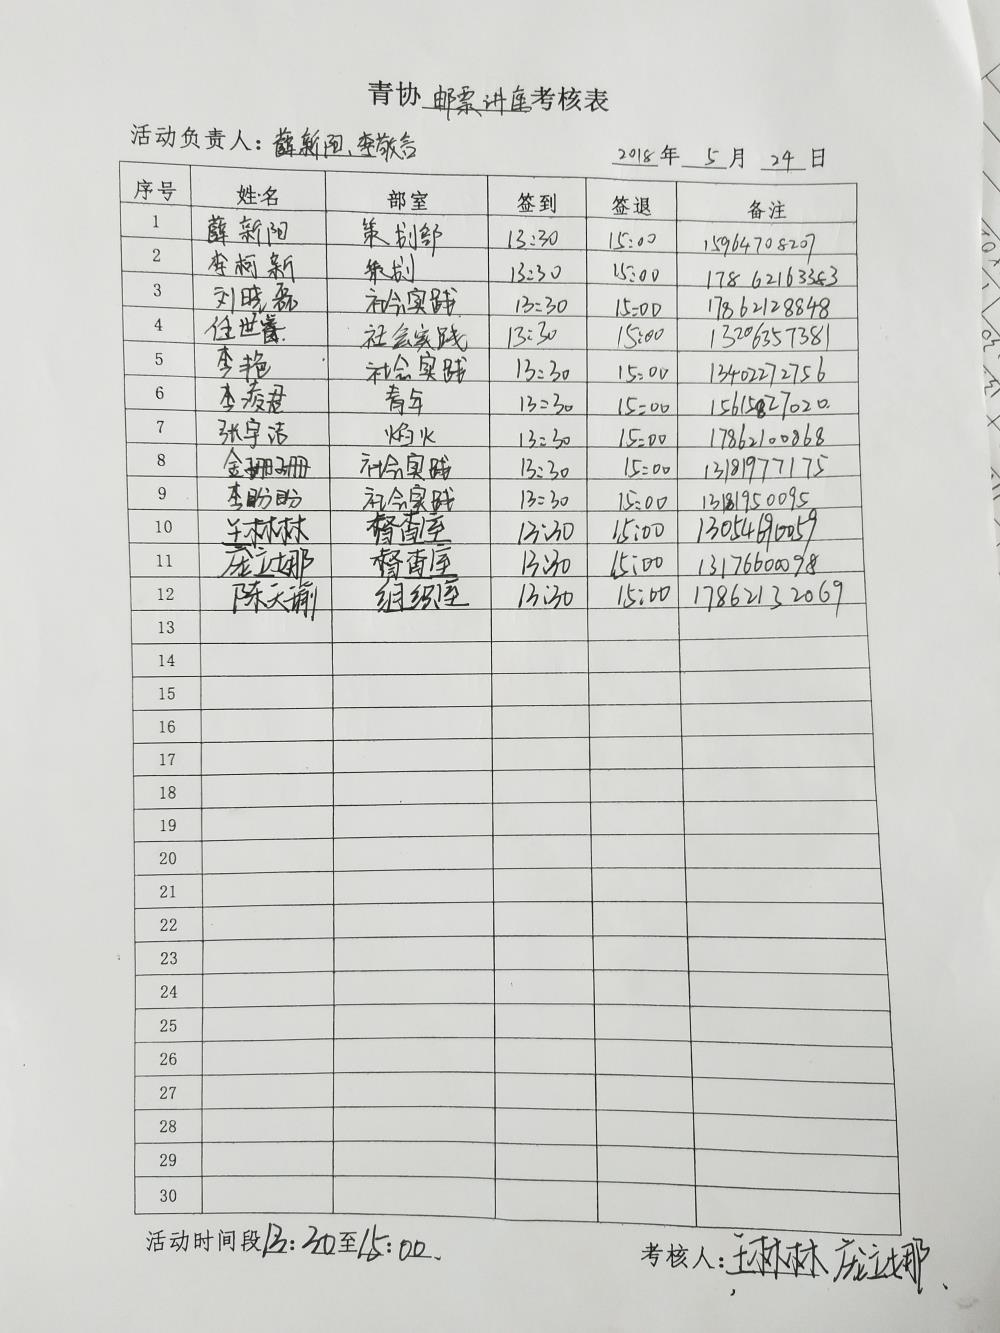 青协 邮票讲座考核表
活动负责人：薛新阳、李敬言
2018年 5 月 24 日
序号 姓名 部室 签到 签退 备注
1 薛新阳 策划部 13:30 15:00 15964708207
2 李柯新 策划 13:30 15:00 17862163383
3 刘晓磊 社会实践 13:30 15:00 17862128848
4 任世睿 社会实践 13:30 15:00 13206357381
5 李艳 社会实践 13:30 15:00 13402272756
6 李凌君 青年 13:30 15:00 15615827020
7 张宇洁 灼火 13:30 15:00 17862100868
8 金珊珊 社会实践 13:30 15:00 13181977175
9 李盼盼 社会实践 13:30 15:00 13181950095
10 王林林 督查室 13:30 15:00 13054690059
11 庞立娜 督查室 13:30 15:00 13176600098
12 陈天瑜 组织室 13:30 15:00 17862132069
13
14
15
16
17
18
19
20
21
22
23
24
25
26
27
28
29
30
活动时间段13:30至15:00.
考核人：王林林 庞立娜